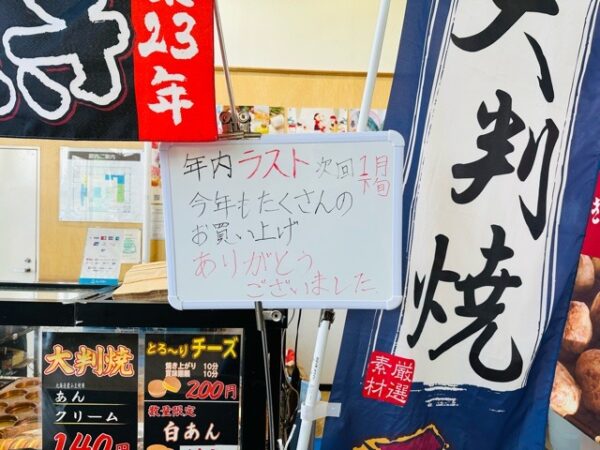 23年
年内ラスト 次回1月下旬
今年もたくさんの
お買い上げ
ありがとう
ございました
大判焼
厳選
素材
大判焼
北海道産小豆使用
あん
クリーム
140円
とろ〜りチーズ
焼き上がり 10分
賞味期限 10分
200円
数量限定
白あん